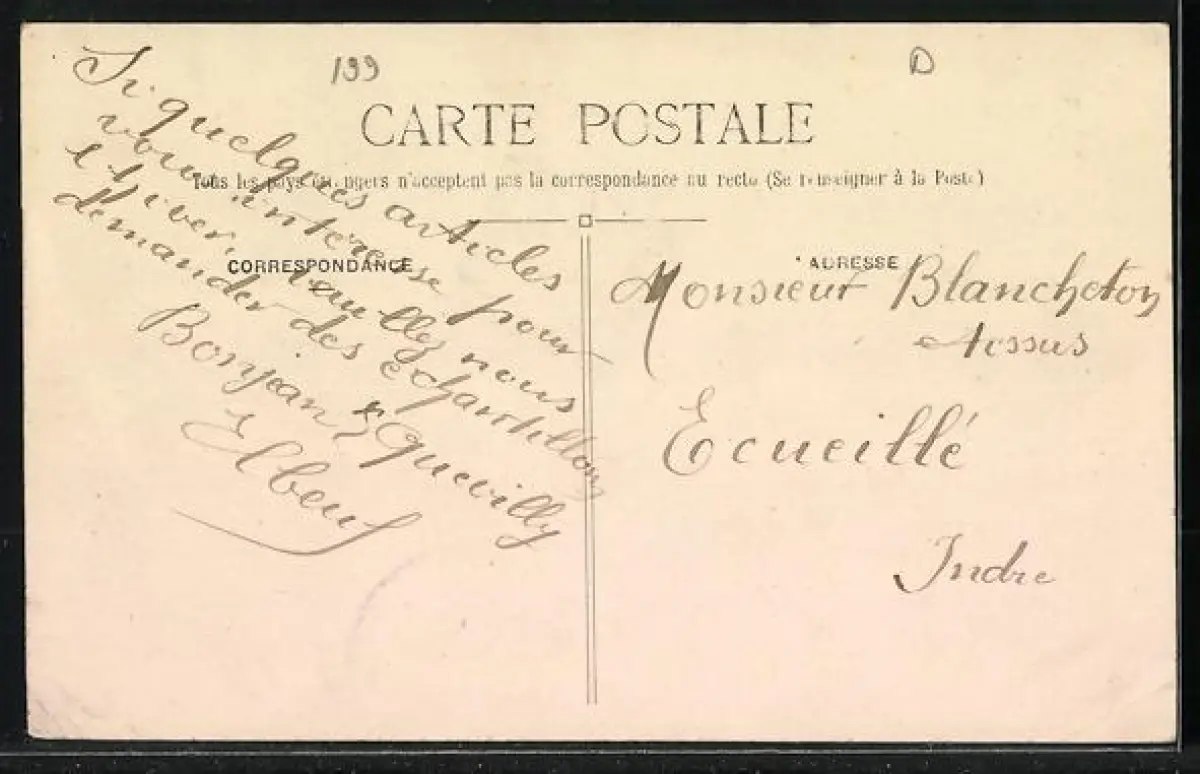 199
D
CARTE POSTALE
Tous les pays étrangers n'acceptent pas la correspondance au recto (Se renseigner à la Poste)
CORRESPONDANCE
Si quelques articles
vous intéresse pour
l'hiver, veuillez nous
demander des échantillons
Bonjean & Quevilly
Elbeuf
ADRESSE
Monsieur Blancheton
Tissus
Ecueillé
Indre